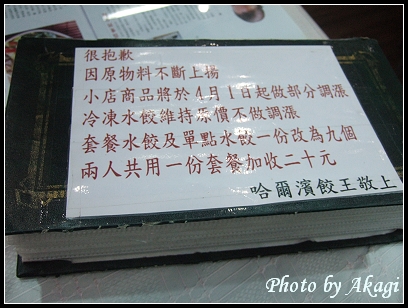 很抱歉
因原物料不斷上揚
小店商品將於4月1日起做部分調漲
冷凍水餃維持原價不做調漲
套餐水餃及單點水餃一份改為九個
兩人共用一份套餐加收二十元
哈爾濱餃王敬上
Photo by Akagi